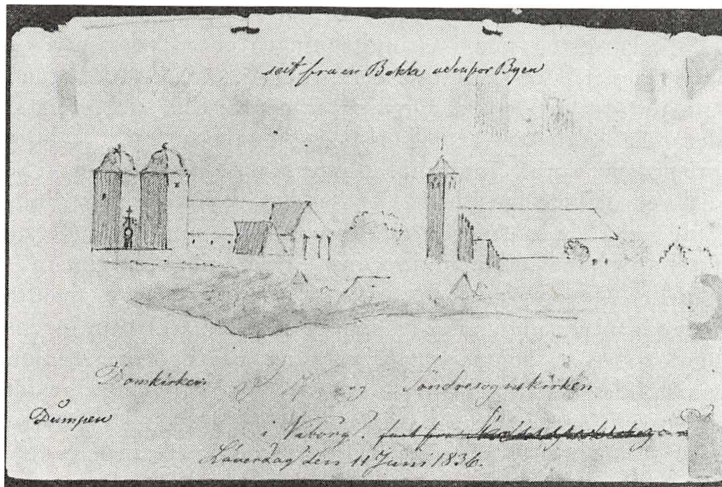 seet fra en Bakke udenfor Byen
Domkirken og Søndresognskirken
Dumpen
i Viborg. seet fra
Löverdag den 11 Juni 1836.